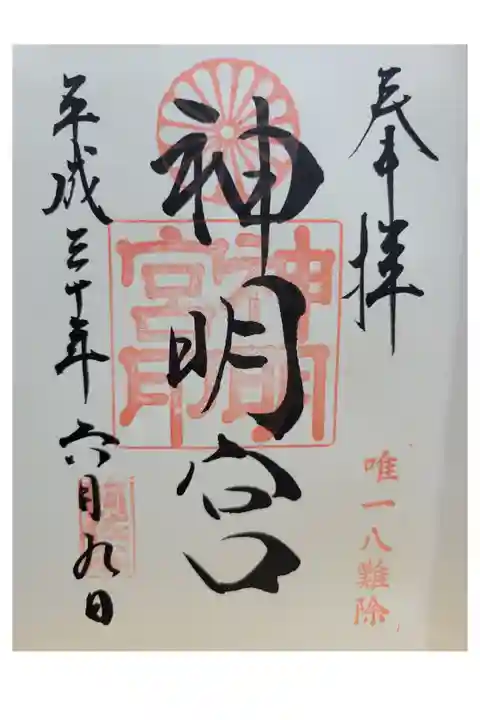 奉拝
唯一八難除
神明宮
神明宮印
平成三十年六月九日